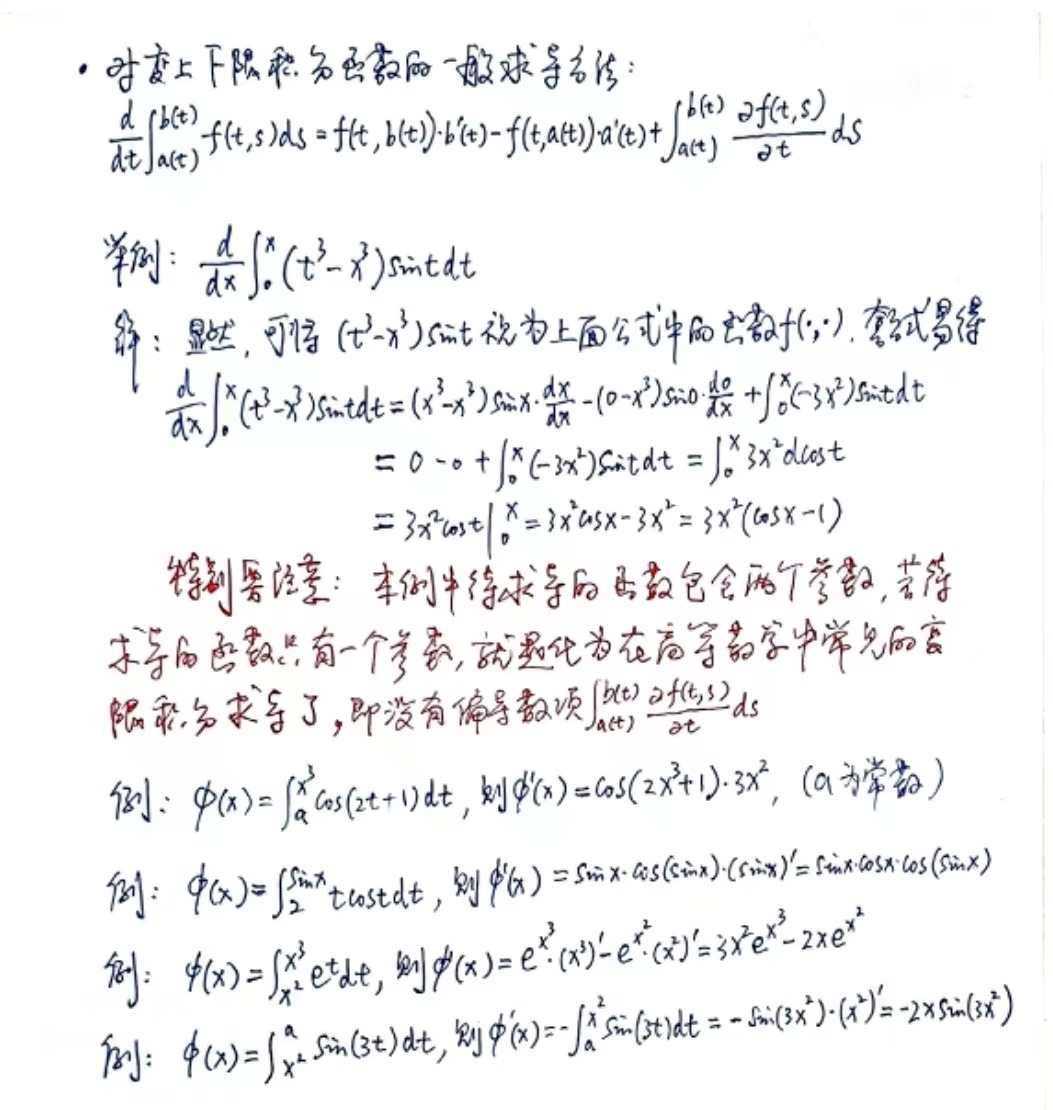 · 对变上下限积分函数的一般求导方法：
d/dt ∫_{a(t)}^{b(t)} f(t,s)ds = f(t,b(t))·b'(t) - f(t,a(t))·a'(t) + ∫_{a(t)}^{b(t)} ∂f(t,s)/∂t ds
举例：d/dx ∫_0^x (t³-x³)sintdt
解：显然，可将(t³-x³)sint视为上面公式中的函数f(·,·)，套公式易得
d/dx ∫_0^x (t³-x³)sintdt = (x³-x³)sinx·dx/dx - (0-x³)sin0·d0/dx + ∫_0^x (-3x²)sintdt
= 0 - 0 + ∫_0^x (-3x²)sintdt = ∫_0^x 3x²dcost
= 3x²cost|_0^x = 3x²cosx - 3x² = 3x²(cosx-1)
特别要注意：本例中待求导的函数包含两个参数，若待
求导的函数只有一个参数，就退化为在高等数学中常见的变
限积分求导了，即没有偏导数项∫_{a(t)}^{b(t)} ∂f(t,s)/∂t ds
例：φ(x)=∫_a^{x³} cos(2t+1)dt，则φ'(x)=cos(2x³+1)·3x²，(a为常数)
例：φ(x)=∫_2^{sinx} tcostdt，则φ'(x)=sinx·cos(sinx)·(sinx)'=sinx·cosx·cos(sinx)
例：φ(x)=∫_{x²}^{x³} e^t dt，则φ'(x)=e^{x³}·(x³)'-e^{x²}·(x²)'=3x²e^{x³}-2xe^{x²}
例：φ(x)=∫_{x²}^a sin(3t)dt，则φ'(x)=-∫_a^{x²} sin(3t)dt=-sin(3x²)·(x²)'=-2xsin(3x²)